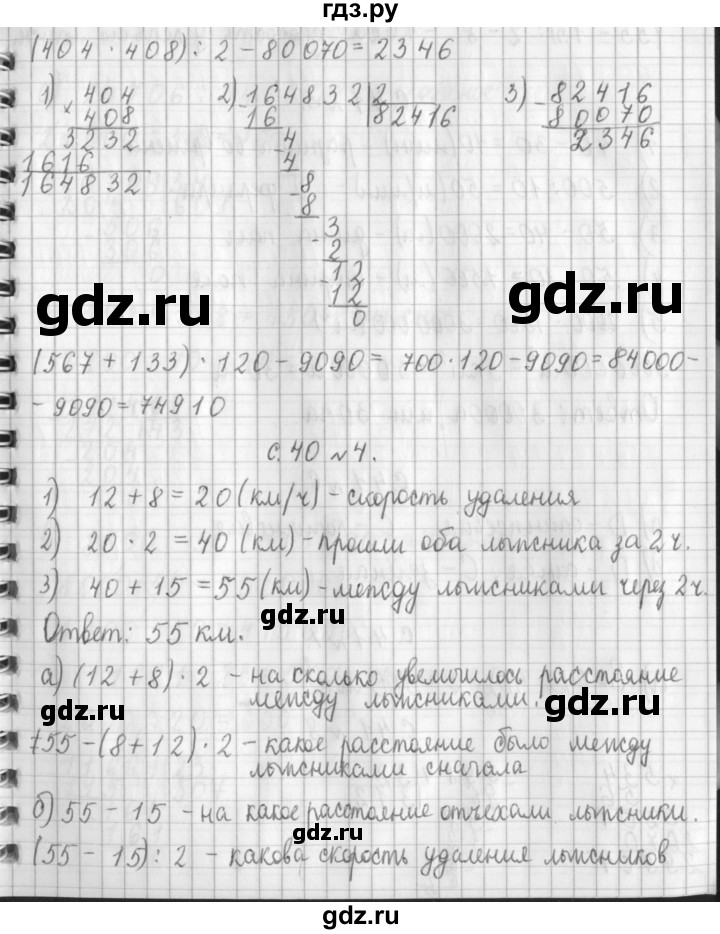 гдз.ру
(404 · 408) : 2 - 80070 = 2346
1) 404 2) 164832 | 2 3) 82416
× 408 - 16 82416 - 80070
3232 - 4 2346
1616 4
164832 - 8
8
- 3
2
- 12
12
0
gdz.ru gdz.ru
(567 + 133) · 120 - 9090 = 700 · 120 - 9090 = 84000 -
- 9090 = 74910
с. 40 № 4.
1) 12 + 8 = 20 (км/ч) - скорость удаления
2) 20 · 2 = 40 (км) - прошли оба лыжника за 2 ч.
3) 40 + 15 = 55 (км) - между лыжниками через 2 ч.
gdz.ru
Ответ: 55 км.
а) (12 + 8) · 2 - на сколько увеличилось расстояние
между лыжниками.
gdz.ru
gdz.ru
55 - (8 + 12) · 2 - какое расстояние было между
лыжниками сначала
б) 55 - 15 - на какое расстояние отъехали лыжники.
gdz.ru
(55 - 15) : 2 - какова скорость удаления лыжников
gdz.ru